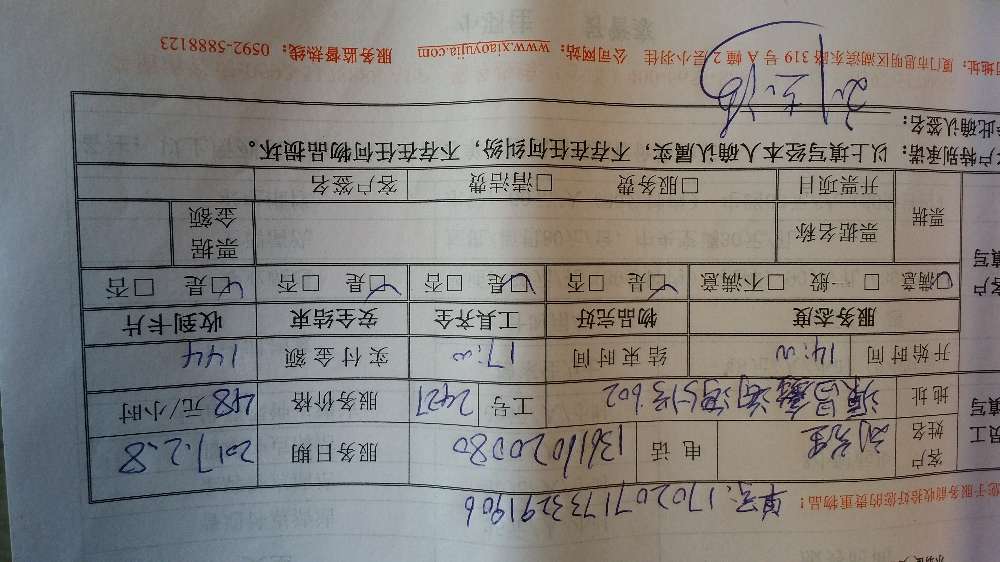 您于服务前收拾好您的贵重物品！
单号：1702071733291906
员工填写
客户姓名 刘先生 电话 13611020080 服务日期 2017.2.8
地址 602 工号 2427 服务价格 48 元/小时
开始时间 14:00 结束时间 17:00 实付金额 144
客户填写
服务态度 物品完好 工具齐全 安全结束 收到卡片
☑满意 □一般 □不满意 ☑是 □否 ☑是 □否 ☑是 □否 ☑是 □否
票据 票据名称 票据金额
开票项目 □服务费 □清洁费 客户签名
客户特别承诺：以上填写经本人确认属实，不存在任何纠纷，不存在任何物品损坏。
在此确认签名：
司地址：厦门市思明区湖滨东路 319 号 A 幢 2 层小羽佳 公司网站：www.xiaoyujia.com 服务监督热线：0592-5888123